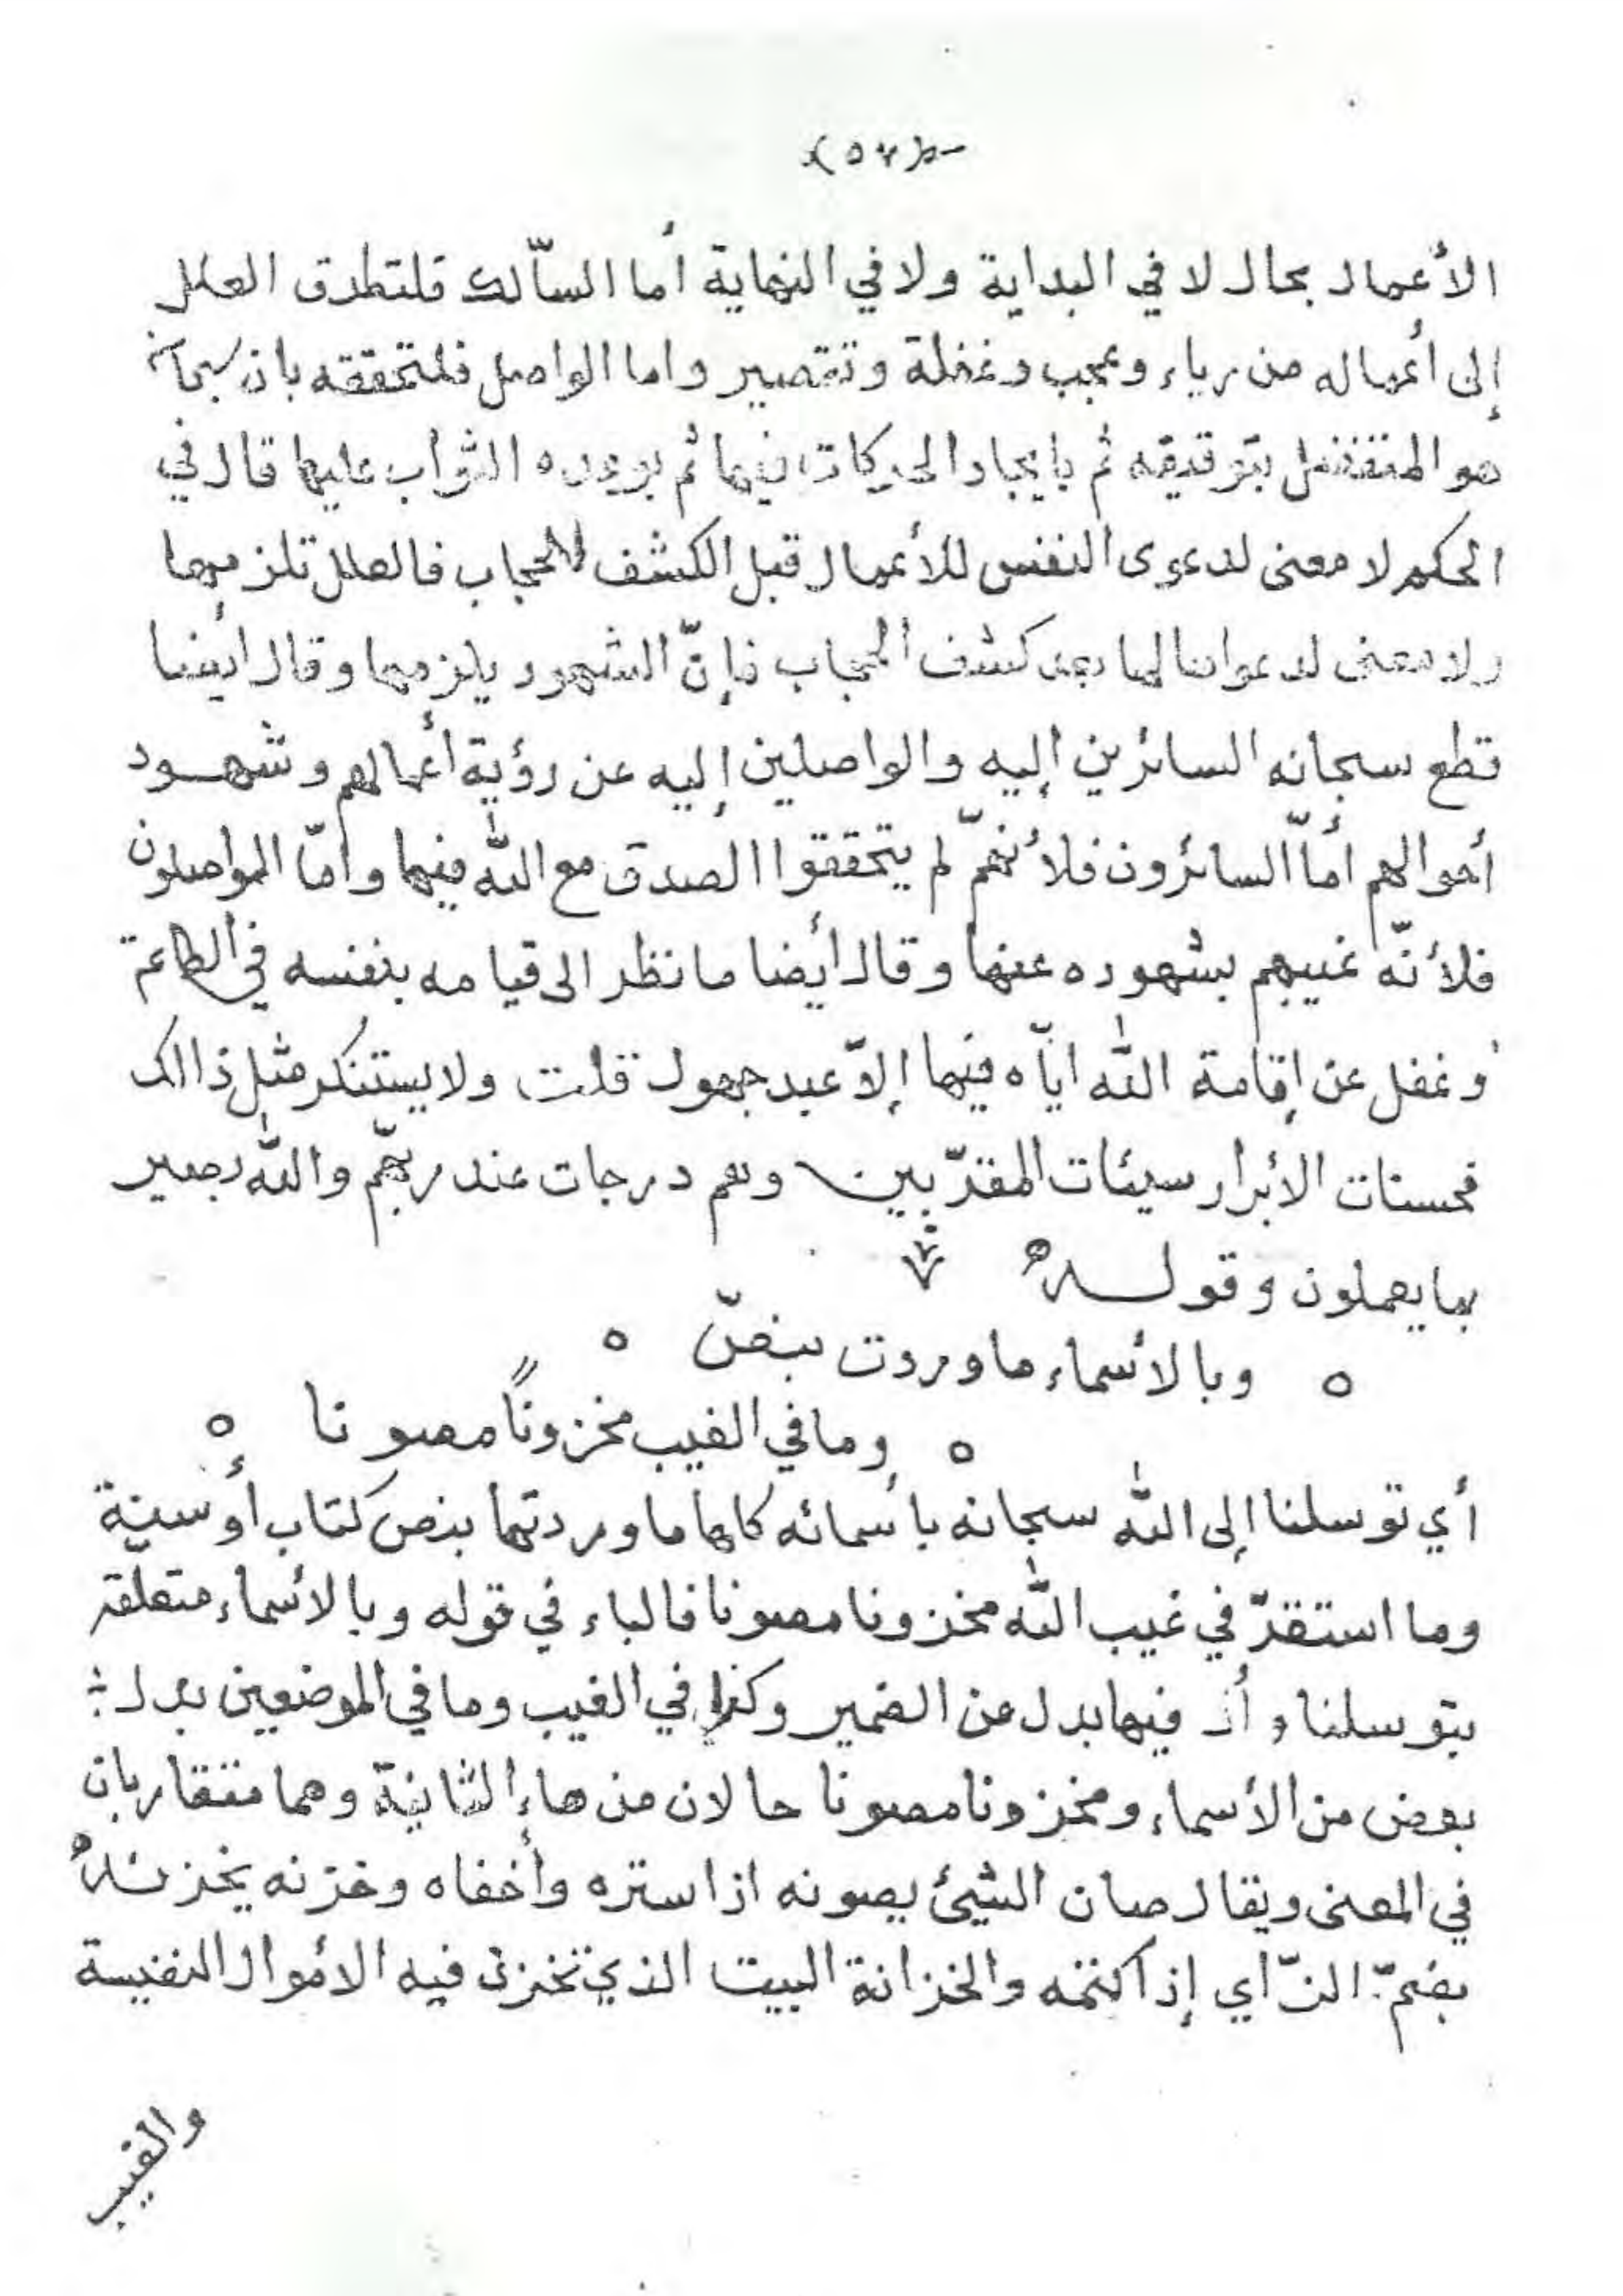 (٥٧)
الأعمال بحال لا في البداية ولا في النهاية أما السّالك فلتطرق العلل
إلى أعماله من رياء وعجب وغفلة وتقصير واما الواصل فلتحققه بان سبحانه
هو المتفضل بتوفيقه ثم بايجاد الحركات فيها ثم بوروده الثواب عليها قال في
الحكم لا معنى لدعوى النفس للأعمال قبل الكشف للحجاب فالعلل تلزمها
ولا معنى لدعواها لها بعد كشف الحجاب فإنّ الشهود يلزمها وقال ايضا
قطع سبحانه السائرين إليه والواصلين إليه عن رؤية أعمالهم وشهود
أحوالهم أمّا السائرون فلأنهمّ لم يتحققوا الصدق مع الله فيها وامّا الواصلون
فلأنّه غيبهم بشهوده عنها وقال أيضا ما نظر الى قيامه بنفسه في الطاعة
وغفل عن إقامة الله ايّاه فيها إلاّ عبد جهول قلت ولا يستنكر مثل ذالك
فحسنات الأبرار سيئات المقرّبين وهم درجات عند ربهّم والله بصير
بما يعملون وقوله
ه وبالأسماء ما وردت بنصّ ه
ه وما في الغيب مخزونًا مصونا ه
أي توسلنا إلى الله سبحانه بأسمائه كلها ما وردتها بنص كتاب أو سنة
وما استقرّ في غيب الله مخزونا مصونا فالباء في قوله وبالأسماء متعلقة
بتوسلنا وأل فيها بدل عن الضمير وكذا في الغيب وما في الموضعين بدل
بعض من الأسماء ومخزونا مصونا حالان من هاء الثانية وهما متقاربان
في المعنى ويقال صان الشيئ يصونه اذا ستره وأخفاه وخزنه يخزنه
بضمّ الزّاي إذا كتمه والخزانة البيت الذي تخزن فيه الأموال النفيسة
والغيب